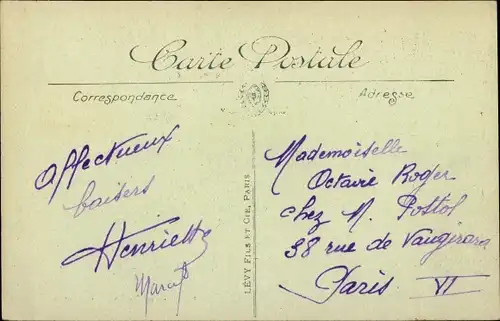 Carte Postale
Correspondance
Adresse
Affectueux
baisers
Henriette
LÉVY FILS ET CIE, PARIS
Mademoiselle
Octavie Roger
chez M. Pottol
38 rue de Vaugirard
Paris VI